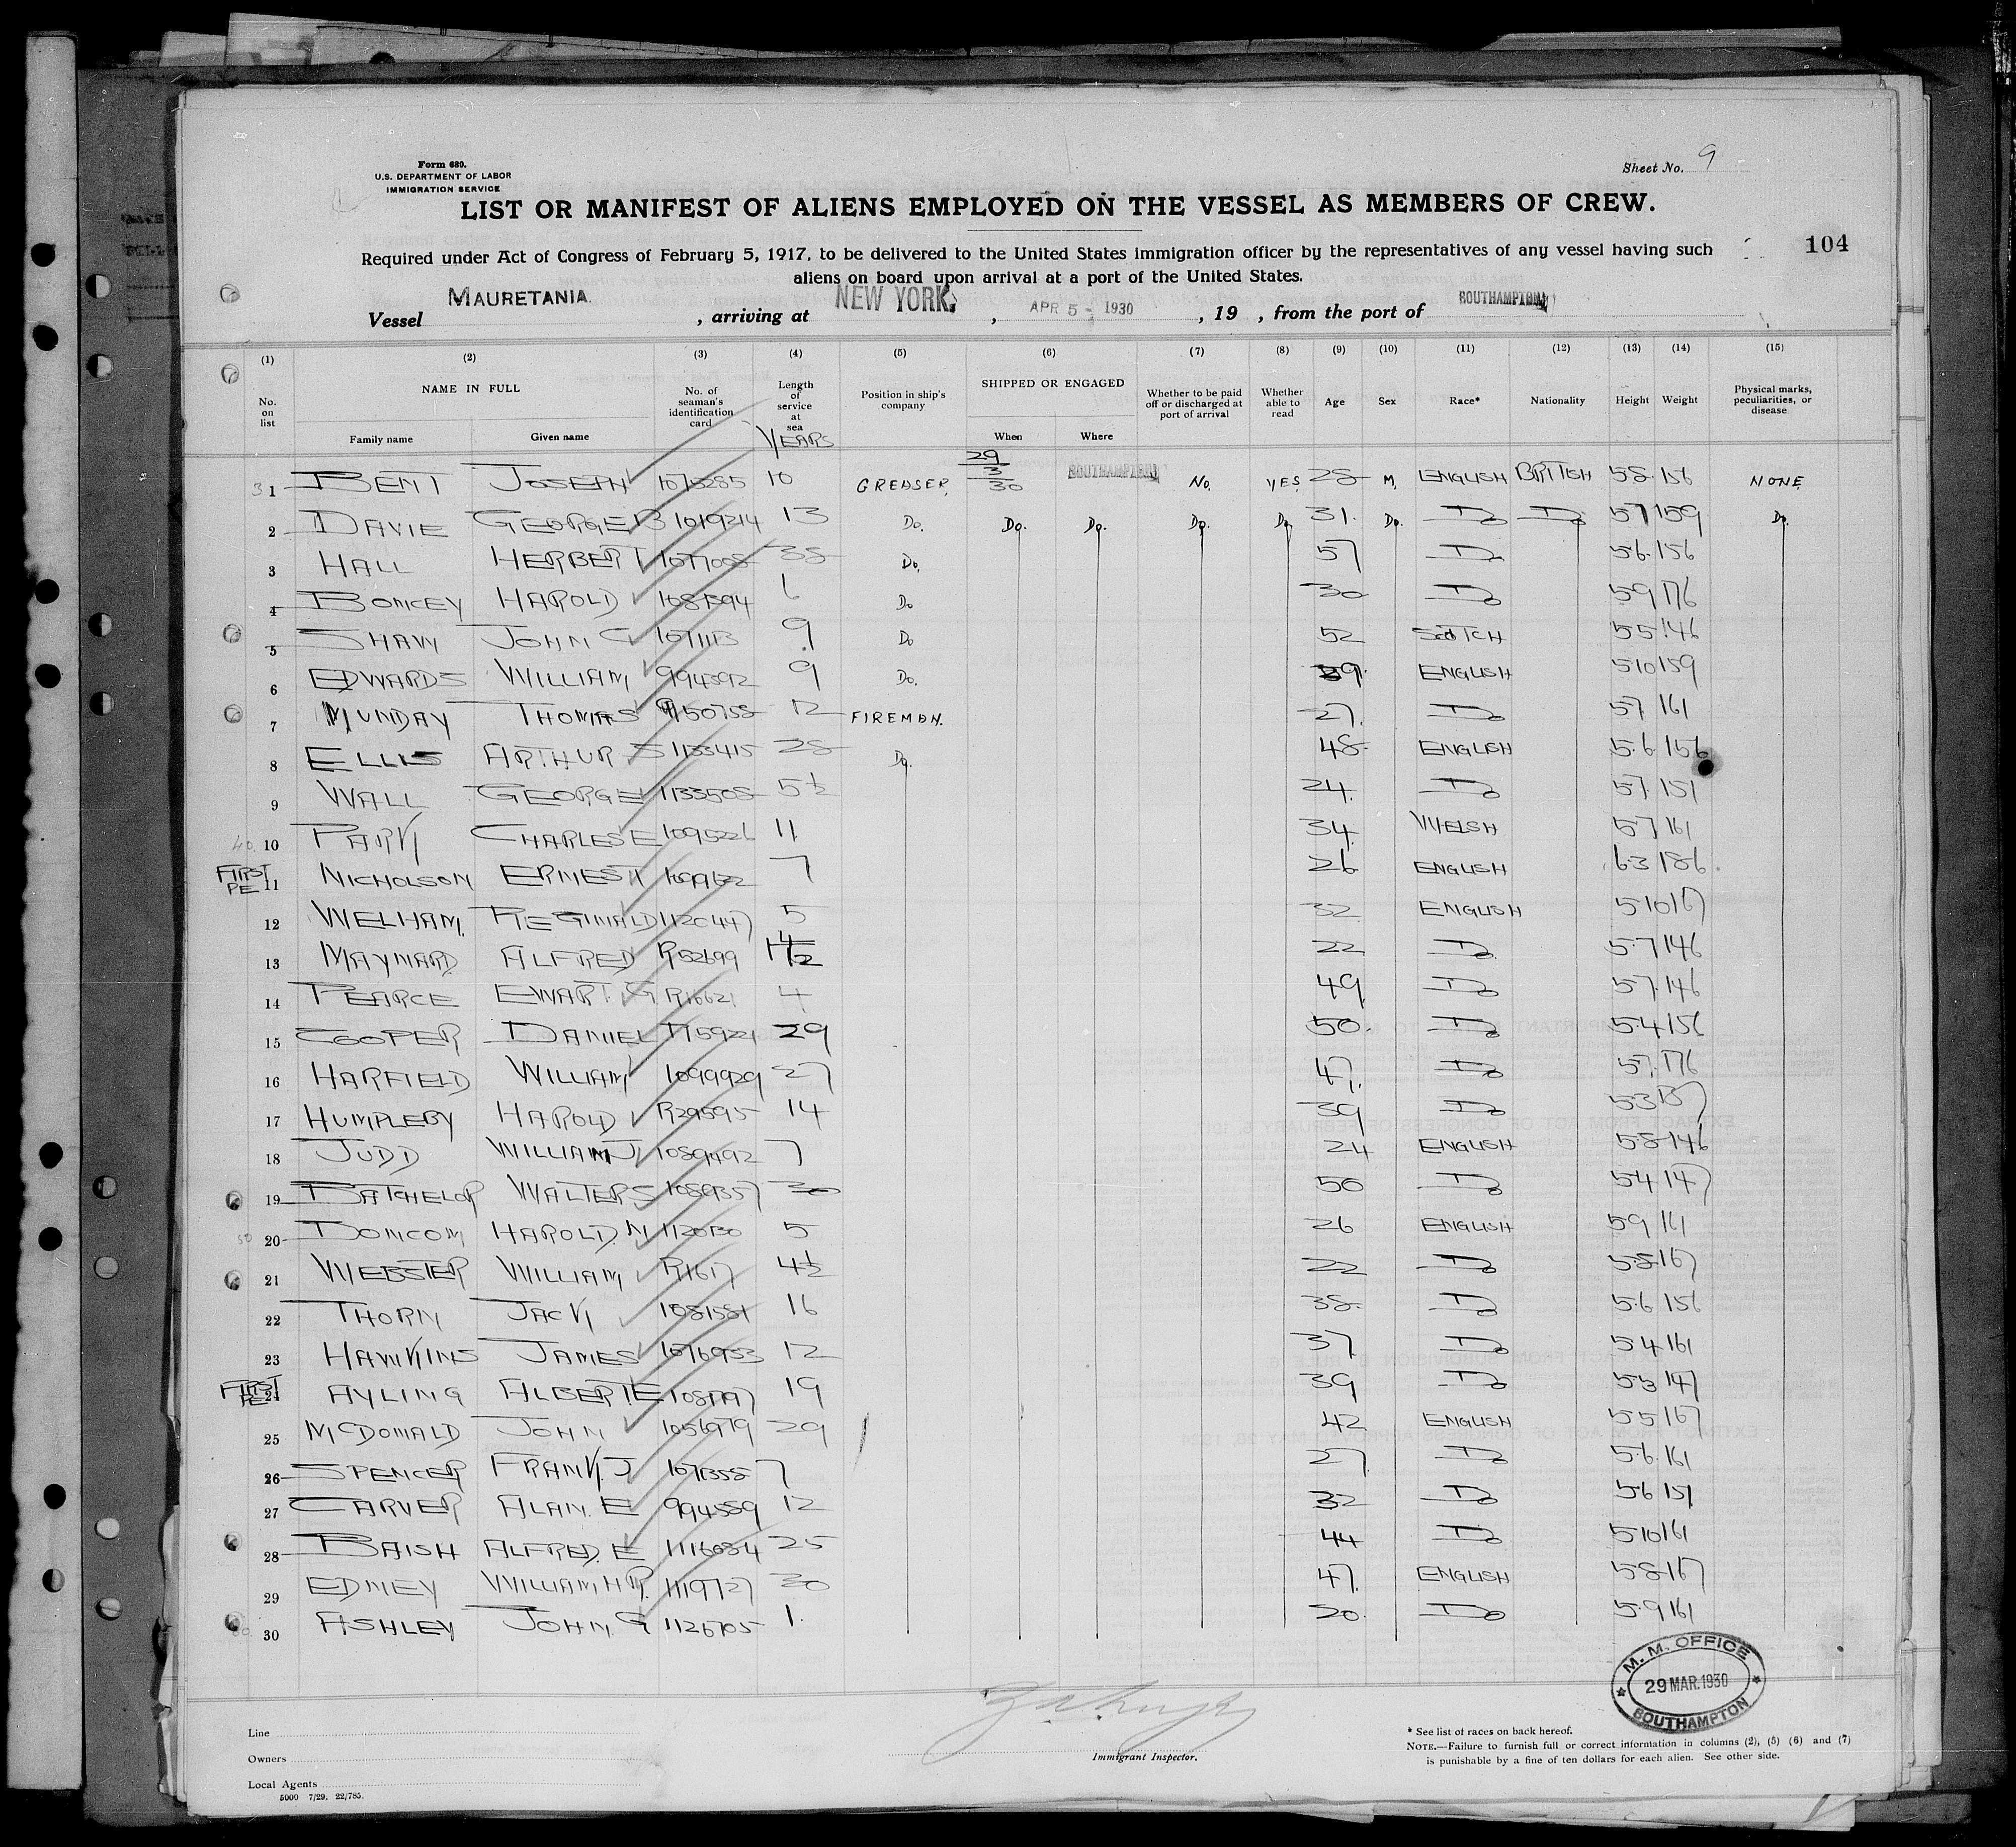 Form 689.
U.S. DEPARTMENT OF LABOR
IMMIGRATION SERVICE
Sheet No. 9
LIST OR MANIFEST OF ALIENS EMPLOYED ON THE VESSEL AS MEMBERS OF CREW.
104
Required under Act of Congress of February 5, 1917, to be delivered to the United States immigration officer by the representatives of any vessel having such
aliens on board upon arrival at a port of the United States.
Vessel MAURETANIA , arriving at NEW YORK, , APR 5 - 1930 , 19 , from the port of SOUTHAMPTON
(1) (2) (3) (4) (5) (6) (7) (8) (9) (10) (11) (12) (13) (14) (15)
No. on list NAME IN FULL Family name Given name No. of seaman's identification card Length of service at sea YEARS Position in ship's company SHIPPED OR ENGAGED When Where Whether to be paid off or discharged at port of arrival Whether able to read Age Sex Race* Nationality Height Weight Physical marks, peculiarities, or disease
1 BENT JOSEPH 1075285 10 GREASER. 29/3/30 SOUTHAMPTON No. YES 28 M. ENGLISH BRITISH 5.8. 156 NONE.
2 DAVIE GEORGE B 1019214 13 Do. Do. Do. Do. Do 31. Do. Do Do 57 159 Do.
3 HALL HERBERT 1077088 38 Do. 57 Do 56. 156
4 BONCEY HAROLD 6 Do 30 Do 59 176
5 SHAW JOHN G 9 Do 52 SCOTCH 55 146
6 EDWARDS WILLIAM 994592 9 Do. 39. ENGLISH 510 159
7 MUNDAY THOMAS 12 FIREMAN. 27. Do 57. 161
8 ELLIS ARTHUR S 1133415 28 Do. 48. ENGLISH 5.6. 156
9 WALL GEORGE 1133508 5½ 24. Do 57. 151
10 PARK CHARLES E 1095226 11 34. WELSH 57 161
FIRST PE 11 NICHOLSON ERNEST 7 26 ENGLISH 63 186.
12 WELHAM. REGINALD 1120447 5 32 ENGLISH 510 167
13 MAYNARD. ALFRED R52699 22 Do 5.7 146
14 PEARCE EWART. G R16621 4 49 Do 57. 146
15 COOPER DANIEL 29 50. Do 5.4 156
16 HARFIELD WILLIAM 1099929 27 47. Do 57. 176
17 HUMPLEBY HAROLD R29595 14 39 Do 53 137
18 JUDD WILLIAM J 1089492 7 24 ENGLISH 58 146
19 BATCHELOR WALTER S 1089357 30 50 Do 54 147
20 BONCOM HAROLD. N 1120130 5 26 ENGLISH 59 161
21 WEBSTER WILLIAM R1617 4½ 22 Do 58 167
22 THORN JACK 1081581 16 38. Do 56 156
23 HAWKINS JAMES 1076953 12 37 Do 54 161
FIRST PE 24 AYLING ALBERT E 19 39 Do 53 147
25 McDONALD JOHN 1056979 29 42 ENGLISH 55 167
26 SPENCER FRANK. J 1071358 7 27 Do 56. 161
27 CARVER ALAN. E 994559 12 32 Do 56 151
28 BAISH ALFRED. E 1116084 25 44 Do 510 161
29 EDNEY WILLIAM H R. 1119727 30 47. ENGLISH 58 167
30 ASHLEY JOHN. G 1126705 1. 20. Do 5.9 161
M. M. OFFICE
29 MAR. 1930
SOUTHAMPTON
Line
Owners
Local Agents
5000 7/29. 22/785.
Immigrant Inspector.
* See list of races on back hereof.
NOTE.—Failure to furnish full or correct information in columns (2), (5) (6) and (7)
is punishable by a fine of ten dollars for each alien. See other side.